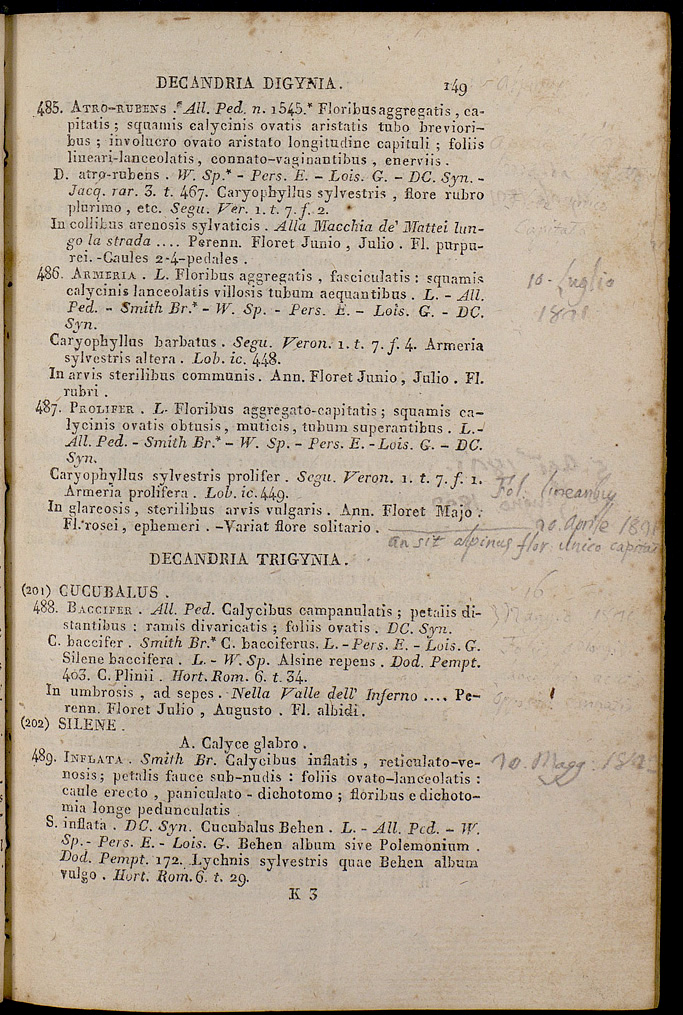 DECANDRIA DIGYNIA. 149
485. ATRO-RUBENS .* All. Ped. n. 1545.* Floribus aggregatis , ca-
pitatis ; squamis calycinis ovatis aristatis tubo breviori-
bus ; involucro ovato aristato longitudine capituli ; foliis
lineari-lanceolatis , connato-vaginantibus , enerviis .
D. atro-rubens . W. Sp.* - Pers. E. - Lois. G. - DC. Syn. -
Jacq. rar. 3. t. 467. Caryophyllus sylvestris , flore rubro
plurimo , etc. Segu. Ver. 1. t. 7. f. 2.
In collibus arenosis sylvaticis . Alla Macchia de' Mattei lun-
go la strada .... Perenn. Floret Junio , Julio . Fl. purpu-
rei. -Caules 2-4-pedales .
486. ARMERIA . L. Floribus aggregatis , fasciculatis : squamis
calycinis lanceolatis villosis tubum aequantibus . L. - All.
Ped. - Smith Br.* - W. Sp. - Pers. E. - Lois. G. - DC.
Syn.
10- Luglio
Caryophyllus barbatus . Segu. Veron. 1. t. 7. f. 4. Armeria
sylvestris altera . Lob. ic. 448.
In arvis sterilibus communis . Ann. Floret Junio , Julio . Fl.
rubri .
487. PROLIFER . L. Floribus aggregato-capitatis ; squamis ca-
lycinis ovatis obtusis , muticis, tubum superantibus . L. -
All. Ped. - Smith Br.* - W. Sp. - Pers. E. - Lois. G. - DC.
Syn.
Caryophyllus sylvestris prolifer . Segu. Veron. 1. t. 7. f. 1.
Armeria prolifera . Lob. ic. 449.
Fol. linearibus
In glareosis , sterilibus arvis vulgaris . Ann. Floret Majo .
Fl. rosei , ephemeri . -Variat flore solitario .
20. Aprile
an sit alpinus flor. unico capitat
DECANDRIA TRIGYNIA.
(201) CUCUBALUS .
16
488. BACCIFER . All. Ped. Calycibus campanulatis ; petalis di-
stantibus : ramis divaricatis ; foliis ovatis . DC. Syn.
C. baccifer . Smith Br.* C. bacciferus. L. - Pers. E. - Lois. G.
Silene baccifera . L. - W. Sp. Alsine repens . Dod. Pempt.
403. C. Plinii . Hort. Rom. 6. t. 34.
In umbrosis , ad sepes . Nella Valle dell' Inferno .... Pe-
renn. Floret Julio , Augusto . Fl. albidi.
(202) SILENE .
A. Calyce glabro .
489. INFLATA . Smith Br. Calycibus inflatis , reticulato-ve-
nosis; petalis fauce sub-nudis : foliis ovato-lanceolatis :
caule erecto , paniculato - dichotomo ; floribus e dichoto-
mia longe pedunculatis .
S. inflata . DC. Syn. Cucubalus Behen . L. - All. Ped. - W.
Sp. - Pers. E. - Lois. G. Behen album sive Polemonium .
Dod. Pempt. 172. Lychnis sylvestris quae Behen album
vulgo . Hort. Rom. 6. t. 29.
K 3